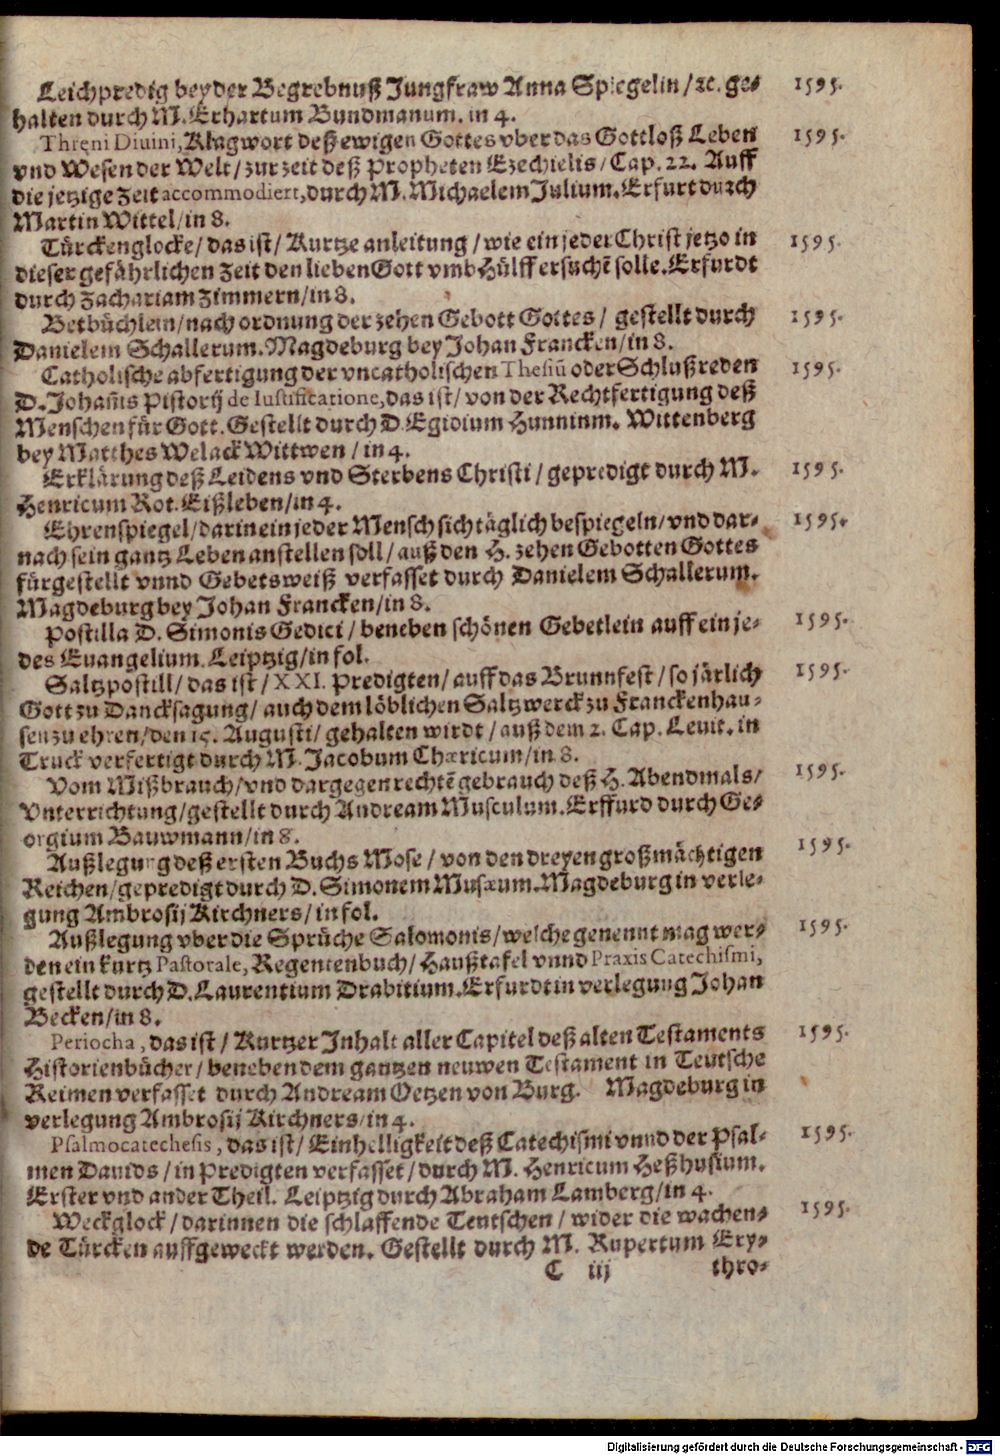 Leichpredig bey der Begrebnuß Jungfraw Anna Spiegelin/ ꝛc. ge- 1595.
halten durch M. Erhartum Bundmanum. in 4.
Thręni Diuini, Klagwort deß ewigen Gottes vber das Gottloß Leben 1595.
vnd Wesen der Welt/ zur zeit deß Propheten Ezechielis/ Cap. 22. Auff
die jetzige Zeit accommodiert, durch M. Michaelem Julium. Erfurt durch
Martin Wittel/ in 8.
Türckenglocke/ das ist/ Kurtze anleitung/ wie ein jeder Christ jetzo in 1595.
dieser gefährlichen Zeit den lieben Gott vmb Hülff ersuchē solle. Erfurdt
durch Zachariam Zimmern/ in 8.
Betbüchlein/ nach ordnung der zehen Gebott Gottes/ gestellt durch 1595.
Danielem Schallerum. Magdeburg bey Johan Francken/ in 8.
Catholische abfertigung der vncatholischen Thesiū oder Schlußreden 1595.
D. Johañis Pistorij de Iustificatione, das ist/ von der Rechtfertigung deß
Menschen für Gott. Gestellt durch D. Egidium Hunninm. Wittenberg
bey Matthes Welack Wittwen / in 4.
Erklärung deß Leidens vnd Sterbens Christi/ gepredigt durch M. 1595.
Henricum Rot. Eißleben/ in 4.
Ehrenspiegel/ darin ein jeder Mensch sich täglich bespiegeln/ vnd dar- 1595.
nach sein gantz Leben anstellen soll/ auß den H. zehen Gebotten Gottes
fürgestellt vnnd Gebetsweiß verfasset durch Danielem Schallerum.
Magdeburg bey Johan Francken/ in 8.
Postilla D. Simonis Gedici/ beneben schönen Gebetlein auff ein je- 1595.
des Euangelium. Leiptzig/ in fol.
Saltzpostill/ das ist/ XXI. Predigten/ auff das Brunnfest/ so järlich 1595.
Gott zu Dancksagung/ auch dem löblichen Saltzwerck zu Franckenhau-
sen zu ehren/ den 15. Augusti/ gehalten wirdt/ auß dem 2. Cap. Leuit. in
Truck verfertigt durch M. Jacobum Chæricum/ in 8.
Vom Mißbrauch/ vnd dargegen rechtē gebrauch deß H. Abendmals/ 1595.
Vnterrichtung/ gestellt durch Andream Musculum. Erffurd durch Ge-
orgium Bauwmann/ in 8.
Außlegung deß ersten Buchs Mose/ von den dreyen großmächtigen 1595.
Reichen/ gepredigt durch D. Simonem Musæum. Magdeburg in verle-
gung Ambrosij Kirchners/ in fol.
Außlegung vber die Sprüche Salomonis/ welche genennt mag wer- 1595.
den ein kurtz Pastorale, Regentenbuch/ Haußtafel vnnd Praxis Catechismi,
gestellt durch D. Laurentium Drabitium. Erfurdt in verlegung Johan
Becken/ in 8.
Periocha, das ist/ Kurtzer Inhalt aller Capitel deß alten Testaments 1595.
Historienbücher/ beneben dem gantzen neuwen Testament in Teutsche
Reimen verfasset durch Andream Oetzen von Burg. Magdeburg in
verlegung Ambrosij Kirchners/ in 4.
Psalmocatechesis, das ist/ Einhelligkeit deß Catechismi vnnd der Psal- 1595.
men Dauids/ in Predigten verfasset/ durch M. Henricum Heßhusium.
Erster vnd ander Theil. Leiptzig durch Abraham Lamberg/ in 4.
Weckglock/ darinnen die schlaffende Teutschen/ wider die wachen- 1595.
de Türcken auffgeweckt werden. Gestellt durch M. Rupertum Ery-
C iij thro-
Digitalisierung gefördert durch die Deutsche Forschungsgemeinschaft - DFG